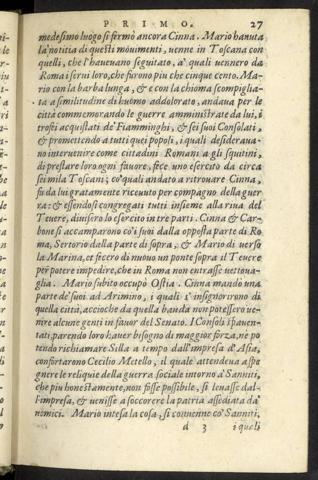 PRIMO. 27
medesimo luogo si fermò ancora Cinna. Mario hauuta
la notitia di questi mouimenti, uenne in Toscana con
quelli, che l'haueuano seguitato, a' quali uennero da
Roma i serui loro, che furono piu che cinque cento. Ma-
rio con la barba lunga, & con la chioma scompiglia-
ta a similitudine di huomo addolorato, andaua per le
città commemorando le guerre amministrate da lui, i
trofei acquistati de' Fiamminghi, & sei suoi Consolati,
& promettendo a tutti quei popoli, i quali desideraua-
no interuenire come cittadini Romani a gli squitini,
di prestare loro ogni fauore, fece uno esercito di circa
sei mila Toscani; co' quali andato a ritrouare Cinna,
fu da lui gratamente riceuuto per compagno della guer-
ra: & essendosi congregati tutti insieme alla riua del
Teuere, diuisero lo esercito in tre parti. Cinna & Car-
bone si accamparono co' i suoi dalla opposta parte di Ro-
ma, Sertorio dalla parte di sopra, & Mario di uerso
la Marina, et fecero di nuouo un ponte sopra il Teuere
per potere impedire, che in Roma non entrasse uettoua-
glia. Mario subito occupò Ostia. Cinna mandò una
parte de' suoi ad Arimino, i quali s'insignorirono di
quella città, accioche da quella banda non potessero ue-
nire alcune genti in fauor del Senato. I Consoli spauen-
tati, parendo loro hauer bisogno di maggior forza, ne po-
tendo richiamare Silla a tempo dall'impresa d'Asia,
confortarono Cecilio Metello, il quale attendeua a spe-
gnere le reliquie della guerra sociale intorno a' Sanniti,
che piu honestamente, non fosse possibile, si leuasse dal-
l'impresa, & uenisse a soccorere la patria assediata da'
nimici. Mario intesa la cosa, si conuenne co' Sanniti,
d 3 i quali